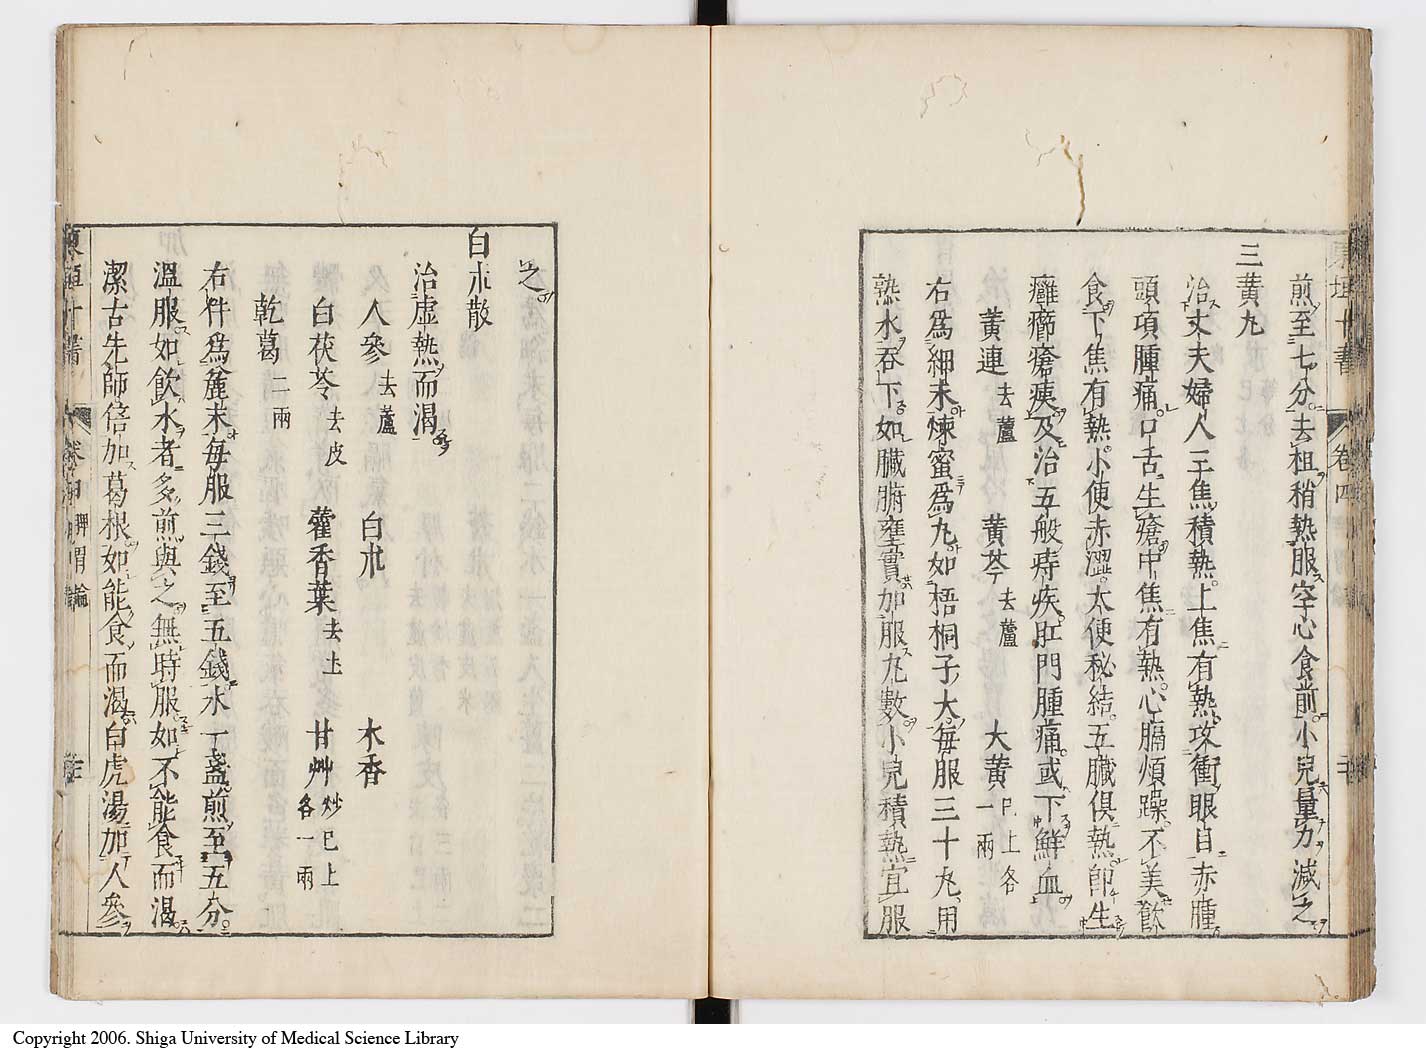 煎至七分去柤稍熱服空心食前小兒量力減之
三黃丸
治丈夫婦人三焦積熱上焦有熱攻衝眼目赤腫
頭項腫痛口舌生瘡中焦有熱心膈煩躁不美飲
食下焦有熱小便赤澀大便秘結五臟俱熱卽生
癰癤瘡痍及治五般痔疾肛門腫痛或下鮮血
黃連去蘆 黃芩去蘆 大黃已上各一兩
右爲細末煉蜜爲丸如梧桐子大每服三十丸用
熟水吞下如臟腑壅實加服丸數小兒積熱宜服
之
白朮散
治虛熱而渴
人參去蘆 白朮 木香
白茯苓去皮 藿香葉去土 甘艸炒已上各一兩
乾葛二兩
右件爲麄末每服三錢至五錢水一盞煎至五分
溫服如飲水者多煎與之無時服如不能食而渴
潔古先師倍加葛根如能食而渴白虎湯加人參
東垣十書 卷四 脾胃論
東垣十書 卷四
Copyright 2006. Shiga University of Medical Science Library